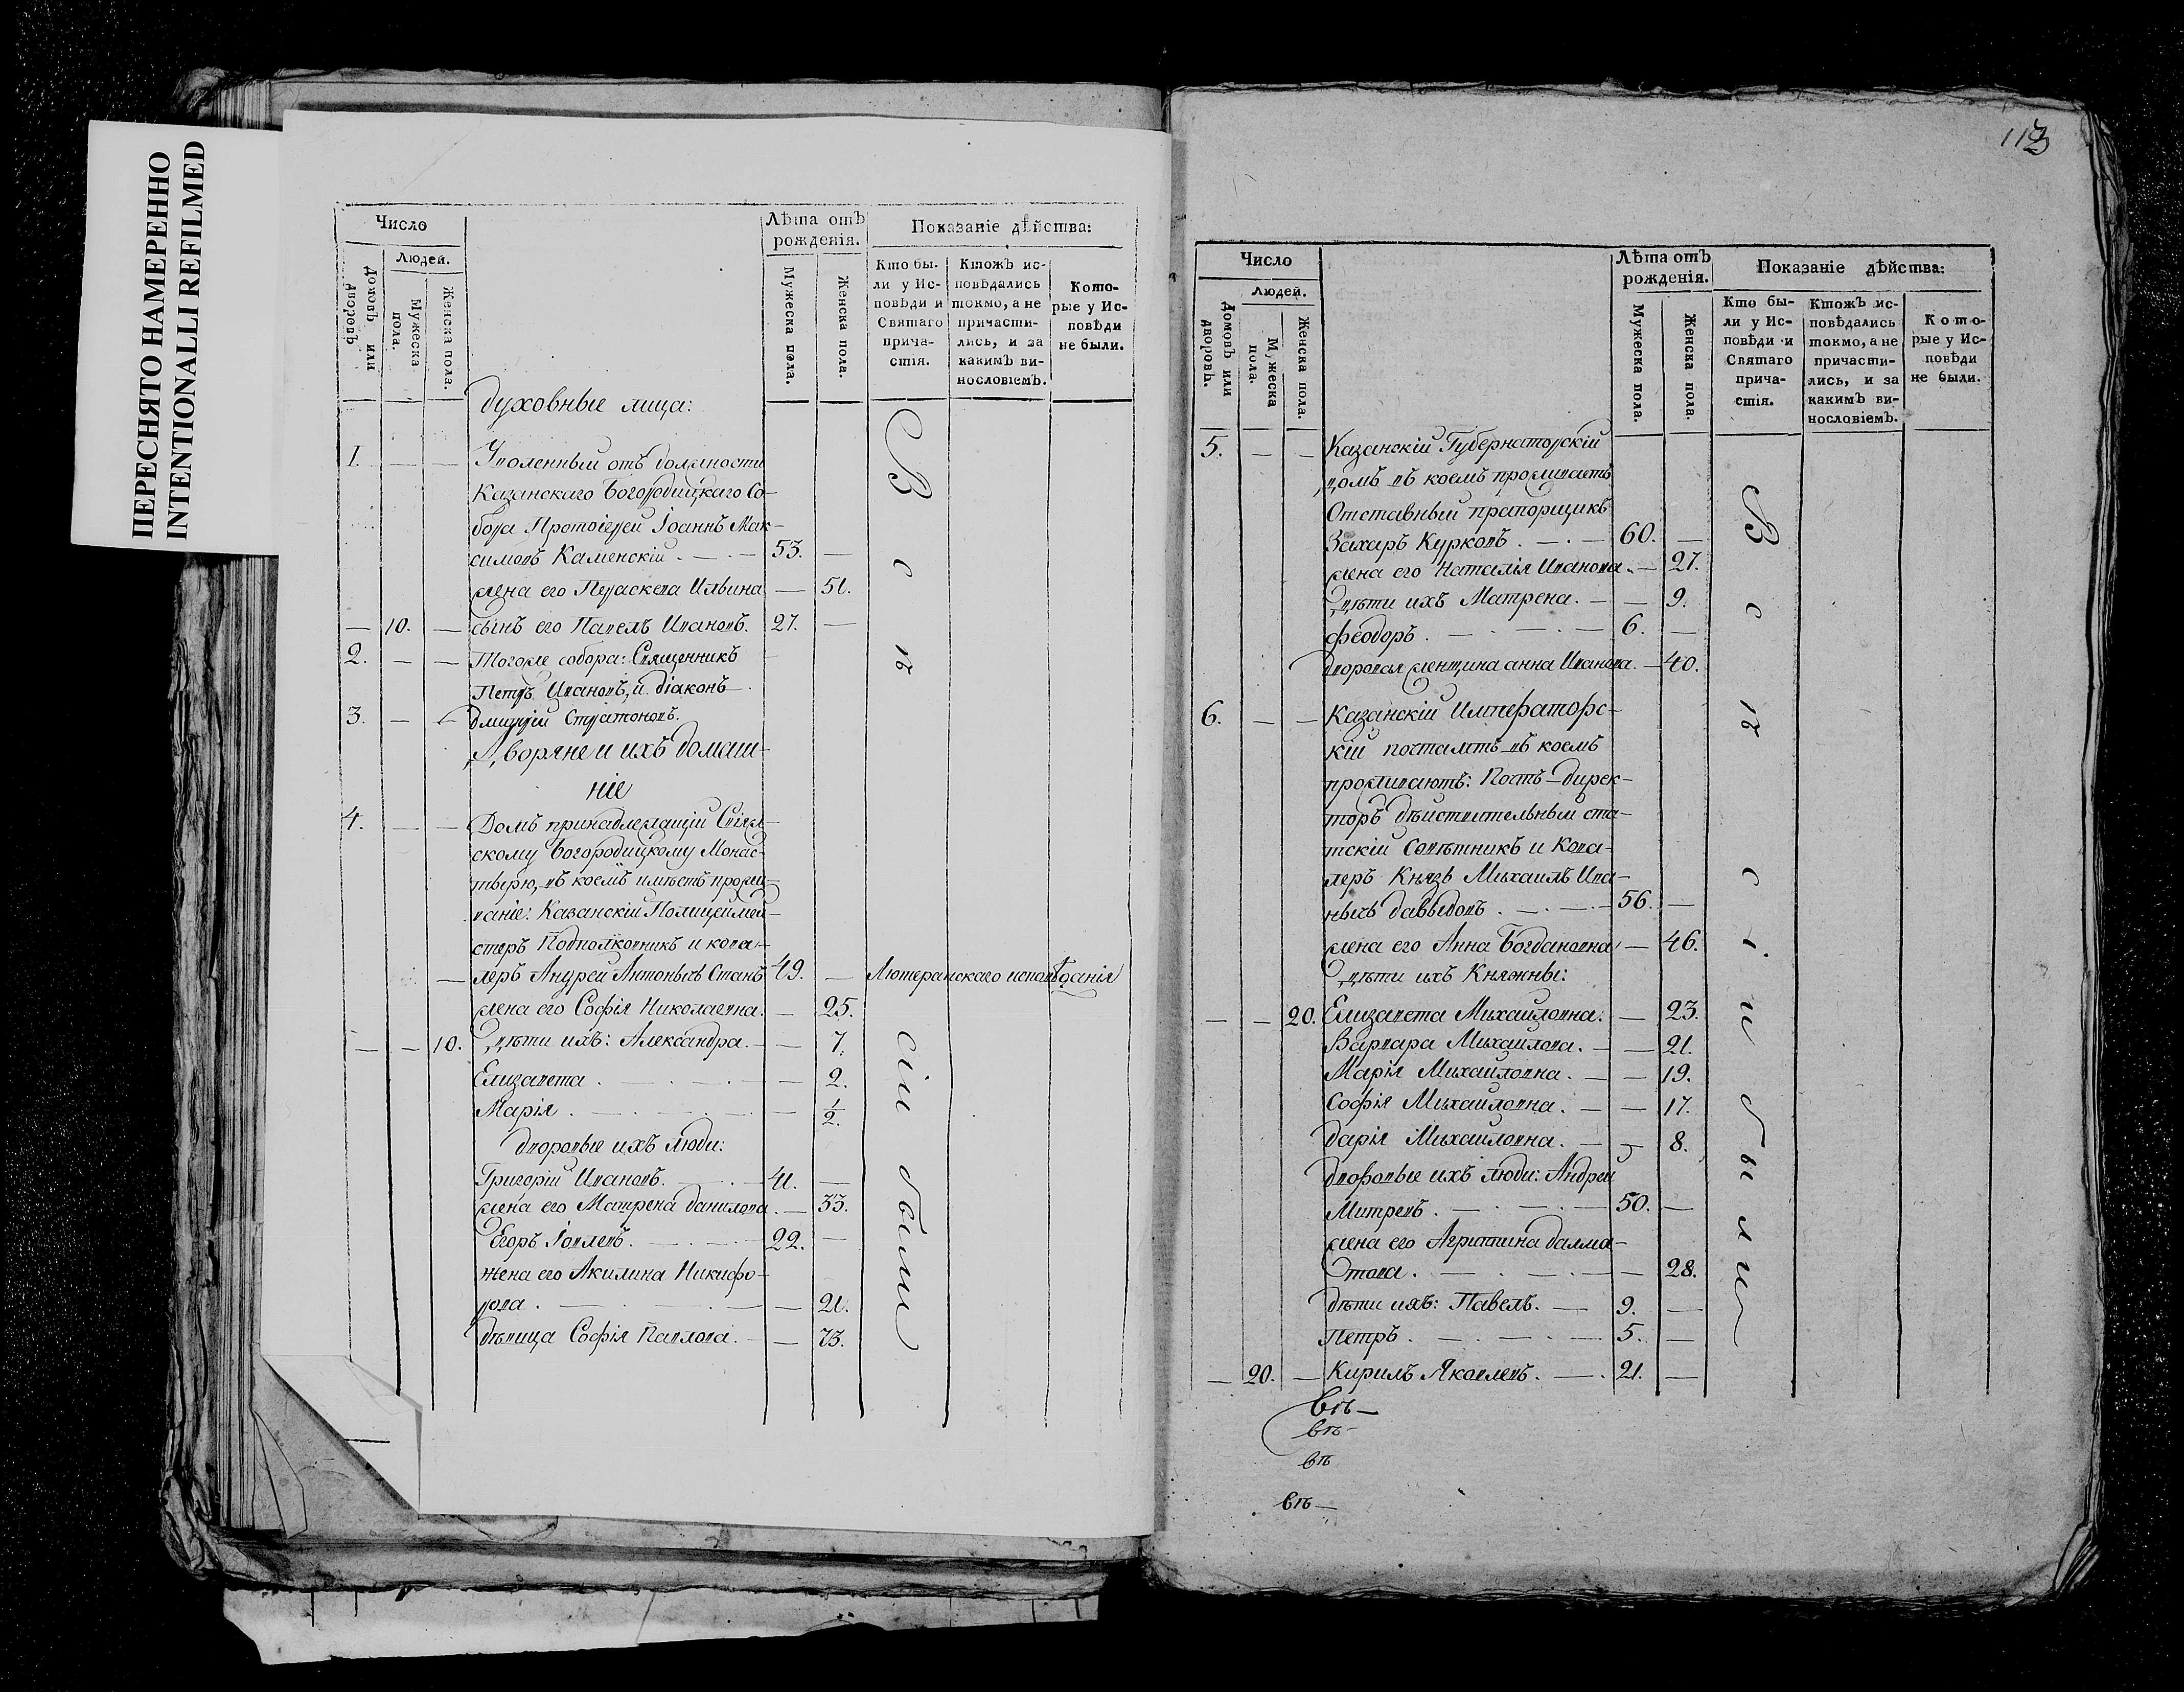 ПЕРЕСНЯТО НАМЕРЕННО
INTENTIONALLI REFILMED
Число
Лѣта отъ
рожденія.
Показаніе дѣйства:
Людей.
Домовъ или
дворовъ
Мужеска
пола.
Женска пола.
Мужеска пола.
Женска пола.
Кто бы-
ли у Ис-
повѣди и
Святаго
прича-
стія.
Ктожъ ис-
повѣдались
токмо, а не
причасти-
лись, и за
какимъ ви-
нословіемъ.
Кото-
рые у Ис-
повѣди
не были.
Духовные лица:
1. — — Уволенный отъ должности
Казанскаго Богородицкаго Со-
бора Протоіерей Іоаннъ Мак-
симовъ Каменскій. — 53. —
жена его Пераскева Ильина — 51.
— 10. — сынъ его Павелъ Ивановъ. 27. —
2. — — Тогоже собора: Священникъ
Петръ Ивановъ, и діаконъ
3. — — Дмитрій Стратоновъ.
Дворяне и ихъ домаш-
ніе
4. — — Домъ принадлежащій Свіяж-
скому Богородицкому Монас-
тырю, въ коемъ имѣетъ прожи-
ваніе: Казанскій Полицеймей-
стеръ Подполковникъ и кава-
— леръ Андрей Антонычь Станъ 49. — Лютеранскаго исповѣданія
жена его Софія Николаевна. — 25.
— — 10. дѣти ихъ: Александра. — — 7.
Елизавета . — . — 2.
Марія . — . — 1/2.
Дворовые ихъ люди:
Григорій Ивановъ. — 41. —
жена его Матрена Данилова. — 33.
Егоръ Іовлевъ. — 22. —
жена его Акилина Никифо-
рова . — — 21.
дѣвица Софія Павлова. — — 73.
Всѣ сіи были
113
Число
Лѣта отъ
рожденія.
Показаніе дѣйства:
Людей.
Домовъ или
дворовъ.
Мужеска
пола.
Женска пола.
Мужеска пола.
Женска пола.
Кто бы-
ли у Ис-
повѣди и
Святаго
прича-
стія.
Ктожъ ис-
повѣдались
токмо, а не
причасти-
лись, и за
какимъ ви-
нословіемъ.
Кото-
рые у Ис-
повѣди
не были.
5. — — Казанскій Губернаторскій
домъ въ коемъ проживаетъ
Отставный прапорщикъ
Захаръ Курковъ . — . — 60. —
жена его Наталія Иванова. — 27.
дѣти их Матрена. — — 9.
Феодоръ . — . — 6. —
дворовая женщина анна Иванова. — 40.
6. — — Казанскій Императорс-
кій почтамтъ въ коемъ
проживаютъ: Постъ-дирек-
торъ дѣйствительный ста-
тскій Совѣтникъ и Кава-
леръ Князь Михаилъ Ива-
нычь Давыдовъ . — . — 56. —
жена его Анна Богдановна — 46.
дѣти ихъ Княжны:
— — 20. Елизавета Михайловна. — 23.
Варвара Михайлова. — — 21.
Марія Михайловна. — — 19.
Софія Михайловна. — — 17.
Дарія Михайловна. — — 8.
Дворовые ихъ люди: Андрей
Митревъ . — . — . — 50. —
жена его Агриппина далма-
това . — . — . — 28.
Дѣти ихъ: Павелъ. — 9. —
Петръ . — . — . — 5. —
— 20. — Кирилъ Яковлевъ. — . 21. —
Всѣ сіи были
всѣ—
всѣ—
всѣ
всѣ—